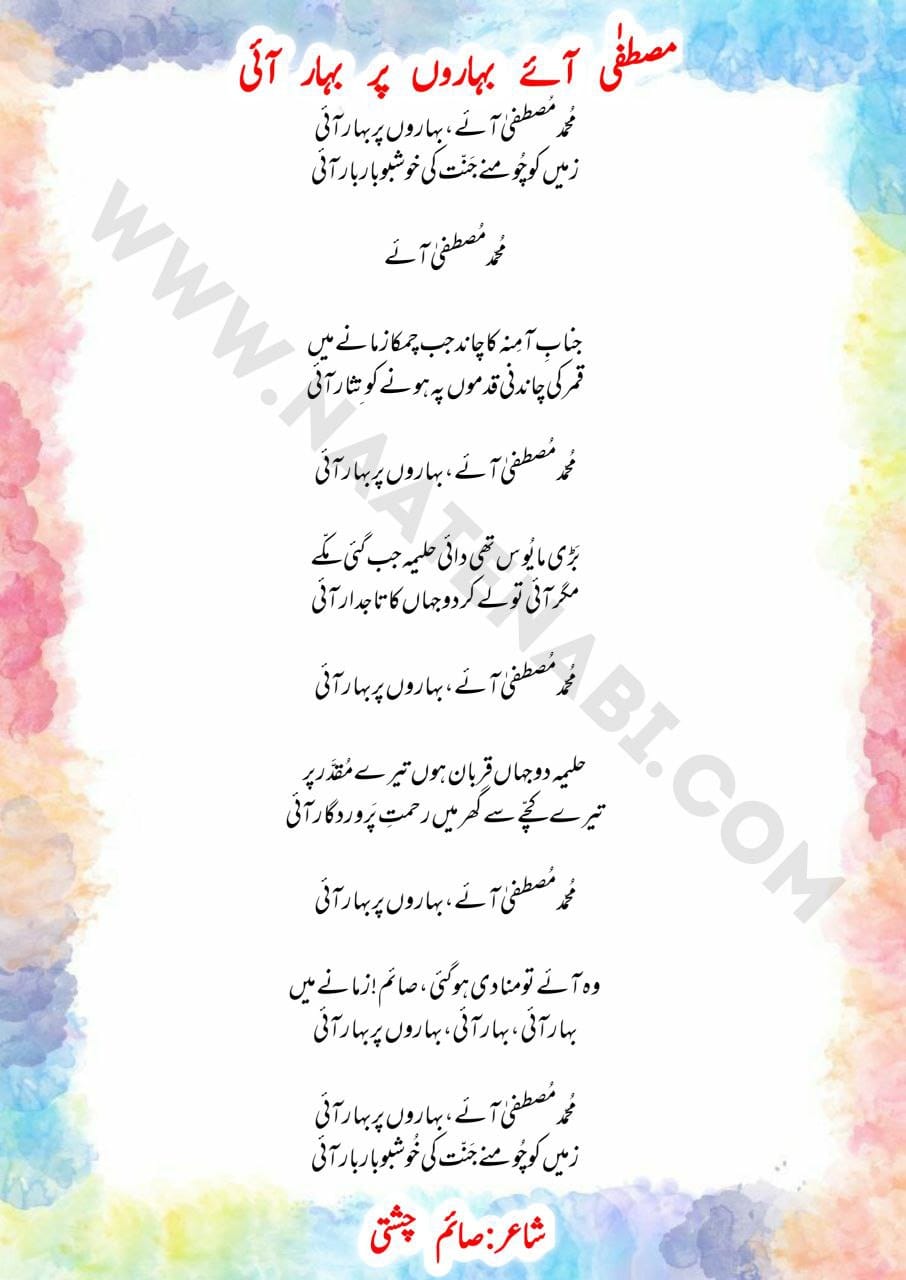 مصطفٰی آئے بہاروں پر بہار آئی
مُحمّد مُصطفیٰ آئے، بہاروں پر بہار آئی
زمیں کو چُومنے جَنّت کی خوشبو بار بار آئی
مُحمّد مُصطفیٰ آئے
جنابِ آمِنہ کا چاند جب چمکا زمانے میں
قمر کی چاندنی قدموں پہ ہونے کو نِثار آئی
مُحمّد مُصطفیٰ آئے، بہاروں پر بہار آئی
بَڑی مایُوس تھی دائی حلیمہ جب گَئی مکّے
مگر آئی تو لے کر دو جہاں کا تاجدار آئی
مُحمّد مُصطفیٰ آئے، بہاروں پر بہار آئی
حلیمہ دو جہاں قربان ہوں تیرے مُقدَّر پر
تیرے کچّے سے گھر میں رحمتِ پَروردگار آئی
مُحمّد مُصطفیٰ آئے، بہاروں پر بہار آئی
وہ آئے تو منادی ہو گَئی، صائم! زمانے میں
بہار آئی، بہار آئی، بہاروں پر بہار آئی
مُحمّد مُصطفیٰ آئے، بہاروں پر بہار آئی
زمیں کو چُومنے جَنّت کی خُوشبو بار بار آئی
شاعر:صائم چشتی
WWW.NAATENABI.COM